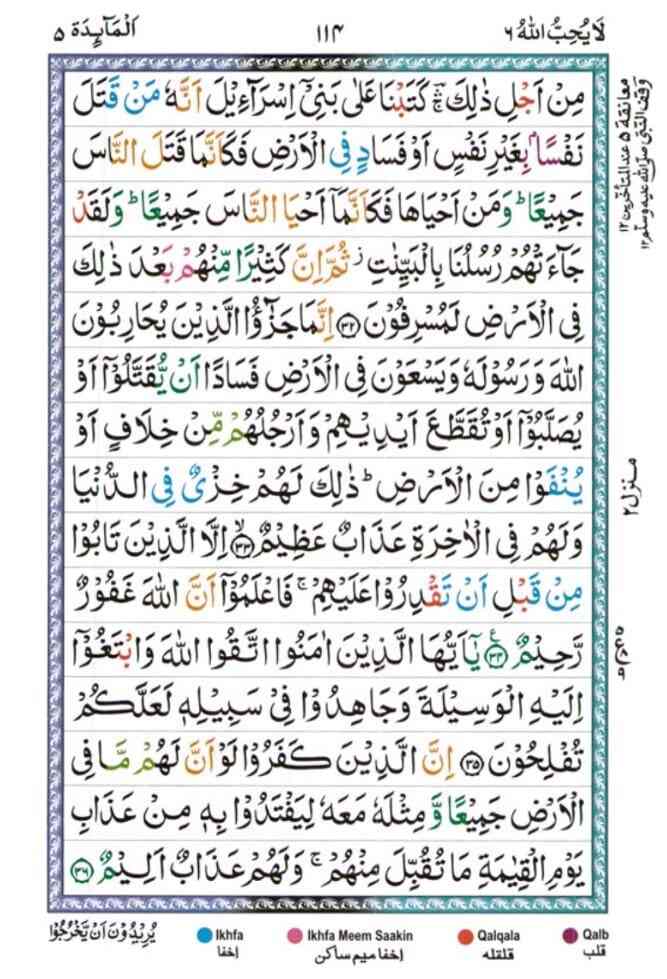 لَا يُحِبُّ اللهُ ٦
١١٤
اَلْمَآىِٕدَة ٥
مِنْ اَجْلِ ذٰلِكَ ۛۚ كَتَبْنَا عَلٰى بَنِيْٓ اِسْرَآءِيْلَ اَنَّهٗ مَنْ قَتَلَ
نَفْسًۢا بِغَيْرِ نَفْسٍ اَوْ فَسَادٍ فِى الْاَرْضِ فَكَاَنَّمَا قَتَلَ النَّاسَ
جَمِيْعًا ؕ وَمَنْ اَحْيَاهَا فَكَاَنَّمَاۤ اَحْيَا النَّاسَ جَمِيْعًا ؕ وَلَقَدْ
جَآءَتْهُمْ رُسُلُنَا بِالْبَيِّنٰتِ ز ثُمَّ اِنَّ كَثِيْرًا مِّنْهُمْ بَعْدَ ذٰلِكَ
فِى الْاَرْضِ لَمُسْرِفُوْنَ ﴿۳۲﴾ اِنَّمَا جَزٰٓؤُا الَّذِيْنَ يُحَارِبُوْنَ
اللهَ وَرَسُوْلَهٗ وَيَسْعَوْنَ فِى الْاَرْضِ فَسَادًا اَنْ يُّقَتَّلُوْۤا اَوْ
يُصَلَّبُوْۤا اَوْ تُقَطَّعَ اَيْدِيْهِمْ وَاَرْجُلُهُمْ مِّنْ خِلَافٍ اَوْ
يُنْفَوْا مِنَ الْاَرْضِ ؕ ذٰلِكَ لَهُمْ خِزْيٌ فِى الدُّنْيَا
وَلَهُمْ فِى الْاٰخِرَةِ عَذَابٌ عَظِيْمٌ ﴿۳۳﴾ اِلَّا الَّذِيْنَ تَابُوْا
مِنْ قَبْلِ اَنْ تَقْدِرُوْا عَلَيْهِمْ ۚ فَاعْلَمُوْۤا اَنَّ اللهَ غَفُوْرٌ
رَّحِيْمٌ ﴿۳۴﴾ يٰۤاَيُّهَا الَّذِيْنَ اٰمَنُوا اتَّقُوا اللهَ وَابْتَغُوْۤا
اِلَيْهِ الْوَسِيْلَةَ وَجَاهِدُوْا فِيْ سَبِيْلِهٖ لَعَلَّكُمْ
تُفْلِحُوْنَ ﴿۳۵﴾ اِنَّ الَّذِيْنَ كَفَرُوْا لَوْ اَنَّ لَهُمْ مَّا فِى
الْاَرْضِ جَمِيْعًا وَّمِثْلَهٗ مَعَهٗ لِيَفْتَدُوْا بِهٖ مِنْ عَذَابِ
يَوْمِ الْقِيٰمَةِ مَا تُقُبِّلَ مِنْهُمْ ۚ وَلَهُمْ عَذَابٌ اَلِيْمٌ ﴿۳۶﴾
معانقة ٥ عند المتأخرين ١٢
وقف النبي صلى الله عليه وسلم ١٢
منزل ٢
يُرِيْدُوْنَ اَنْ يَّخْرُجُوْا
Ikhfa
اِخفا
Ikhfa Meem Saakin
اِخفا میم ساکن
Qalqala
قلقلہ
Qalb
قلب